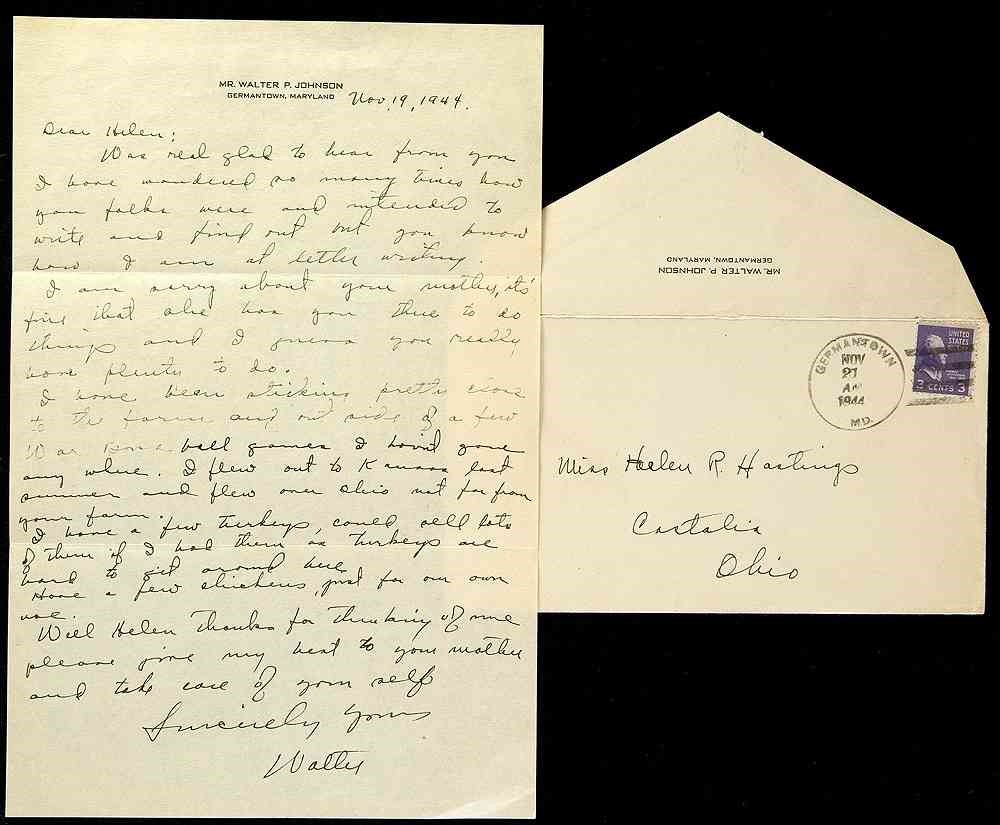 MR. WALTER P. JOHNSON
GERMANTOWN, MARYLAND
Nov, 19, 1944.
Dear Helen;
Was real glad to hear from you
I have wondered so many times how
you folks were and intended to
write and find out but you know
how I am at letter writing.
I am sorry about your mother, it's
fine that she has you there to do
things and I guess you really
have plenty to do.
I have been sticking pretty close
to the farm and out side of a few
War Bond ball games I havint gone
any where. I flew out to Kansas last
summer and flew over Ohio not far from
your farm.
I have a few turkeys, could sell lots
of them if I had them as turkeys are
hard to git around here
Have a few chickens, just for our own
use.
Well Helen thanks for thinking of me
please give my best to your mother
and take care of your self
Sincerely yours
Walter
MR. WALTER P. JOHNSON
GERMANTOWN, MARYLAND
GERMANTOWN
NOV
21
AM
1944
MD.
UNITED
STATES
3 CENTS 3
Miss Helen R. Hastings
Castalia
Ohio